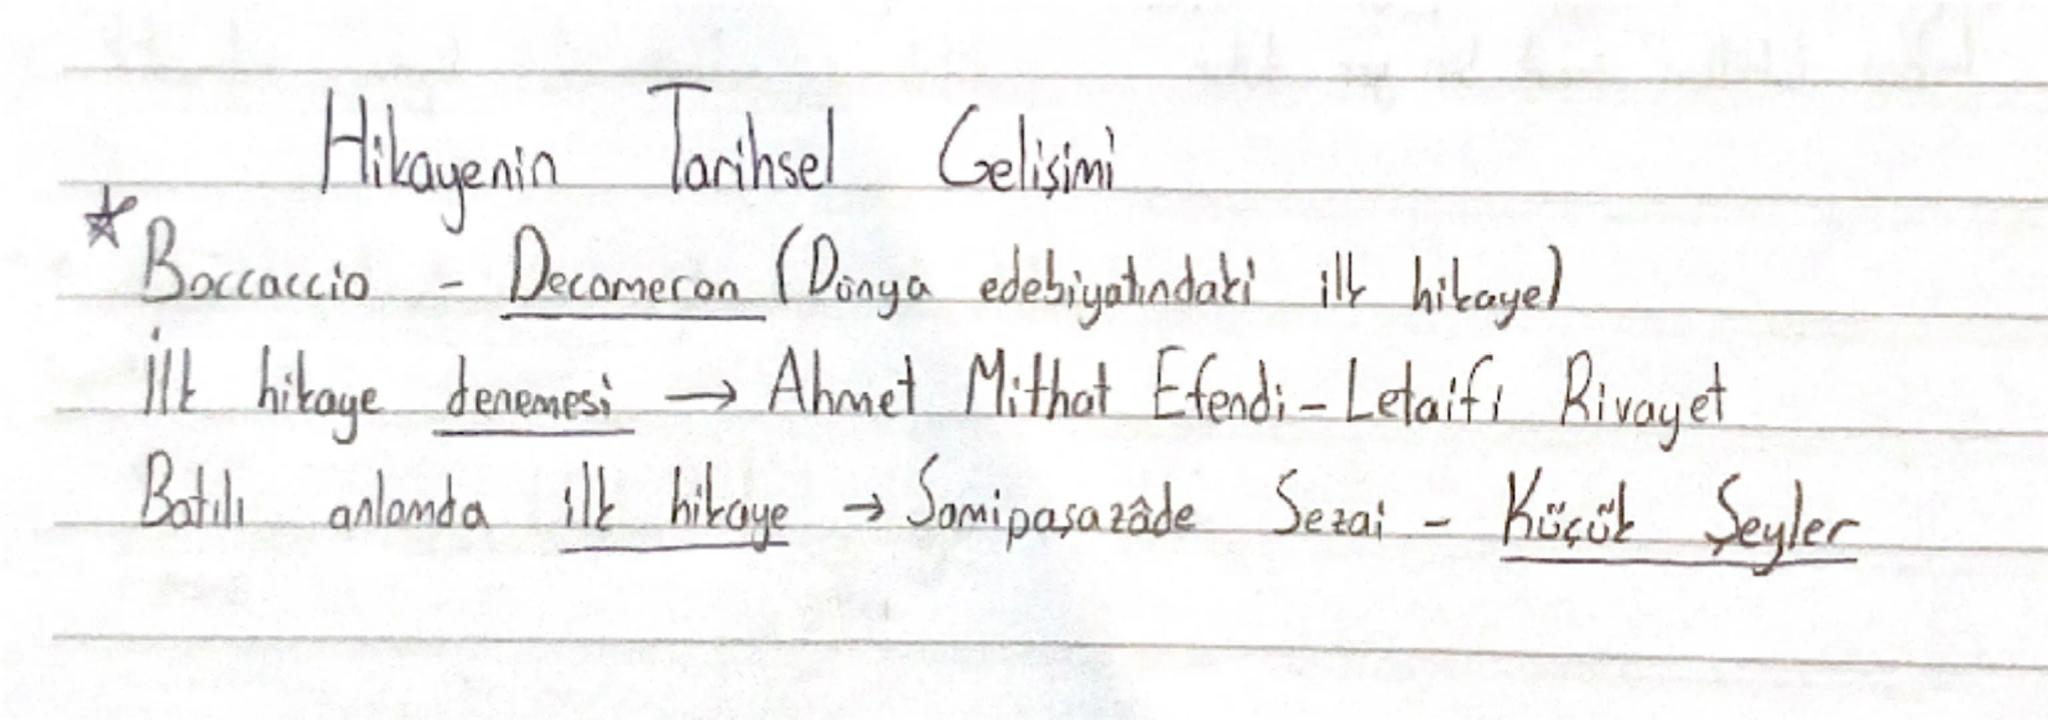 Hikayenin Tarihsel Gelişimi
Boccaccio - Decameron (Dünya edebiyatındaki ilk hikaye)
İlk hikaye denemesi → Ahmet Mithat Efendi - Letaifi Rivayet
Batılı anlamda ilk hikaye → Samipaşazâde Sezai - Küçük Şeyler